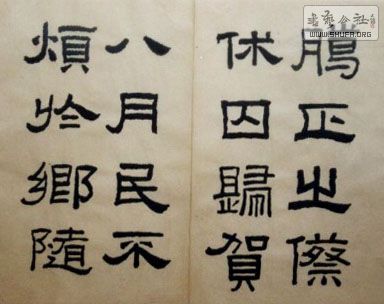 書藝公社
WWW.SHUFA.ORG
臘正之傺
休囚歸賀
八月民不
煩於鄉隨